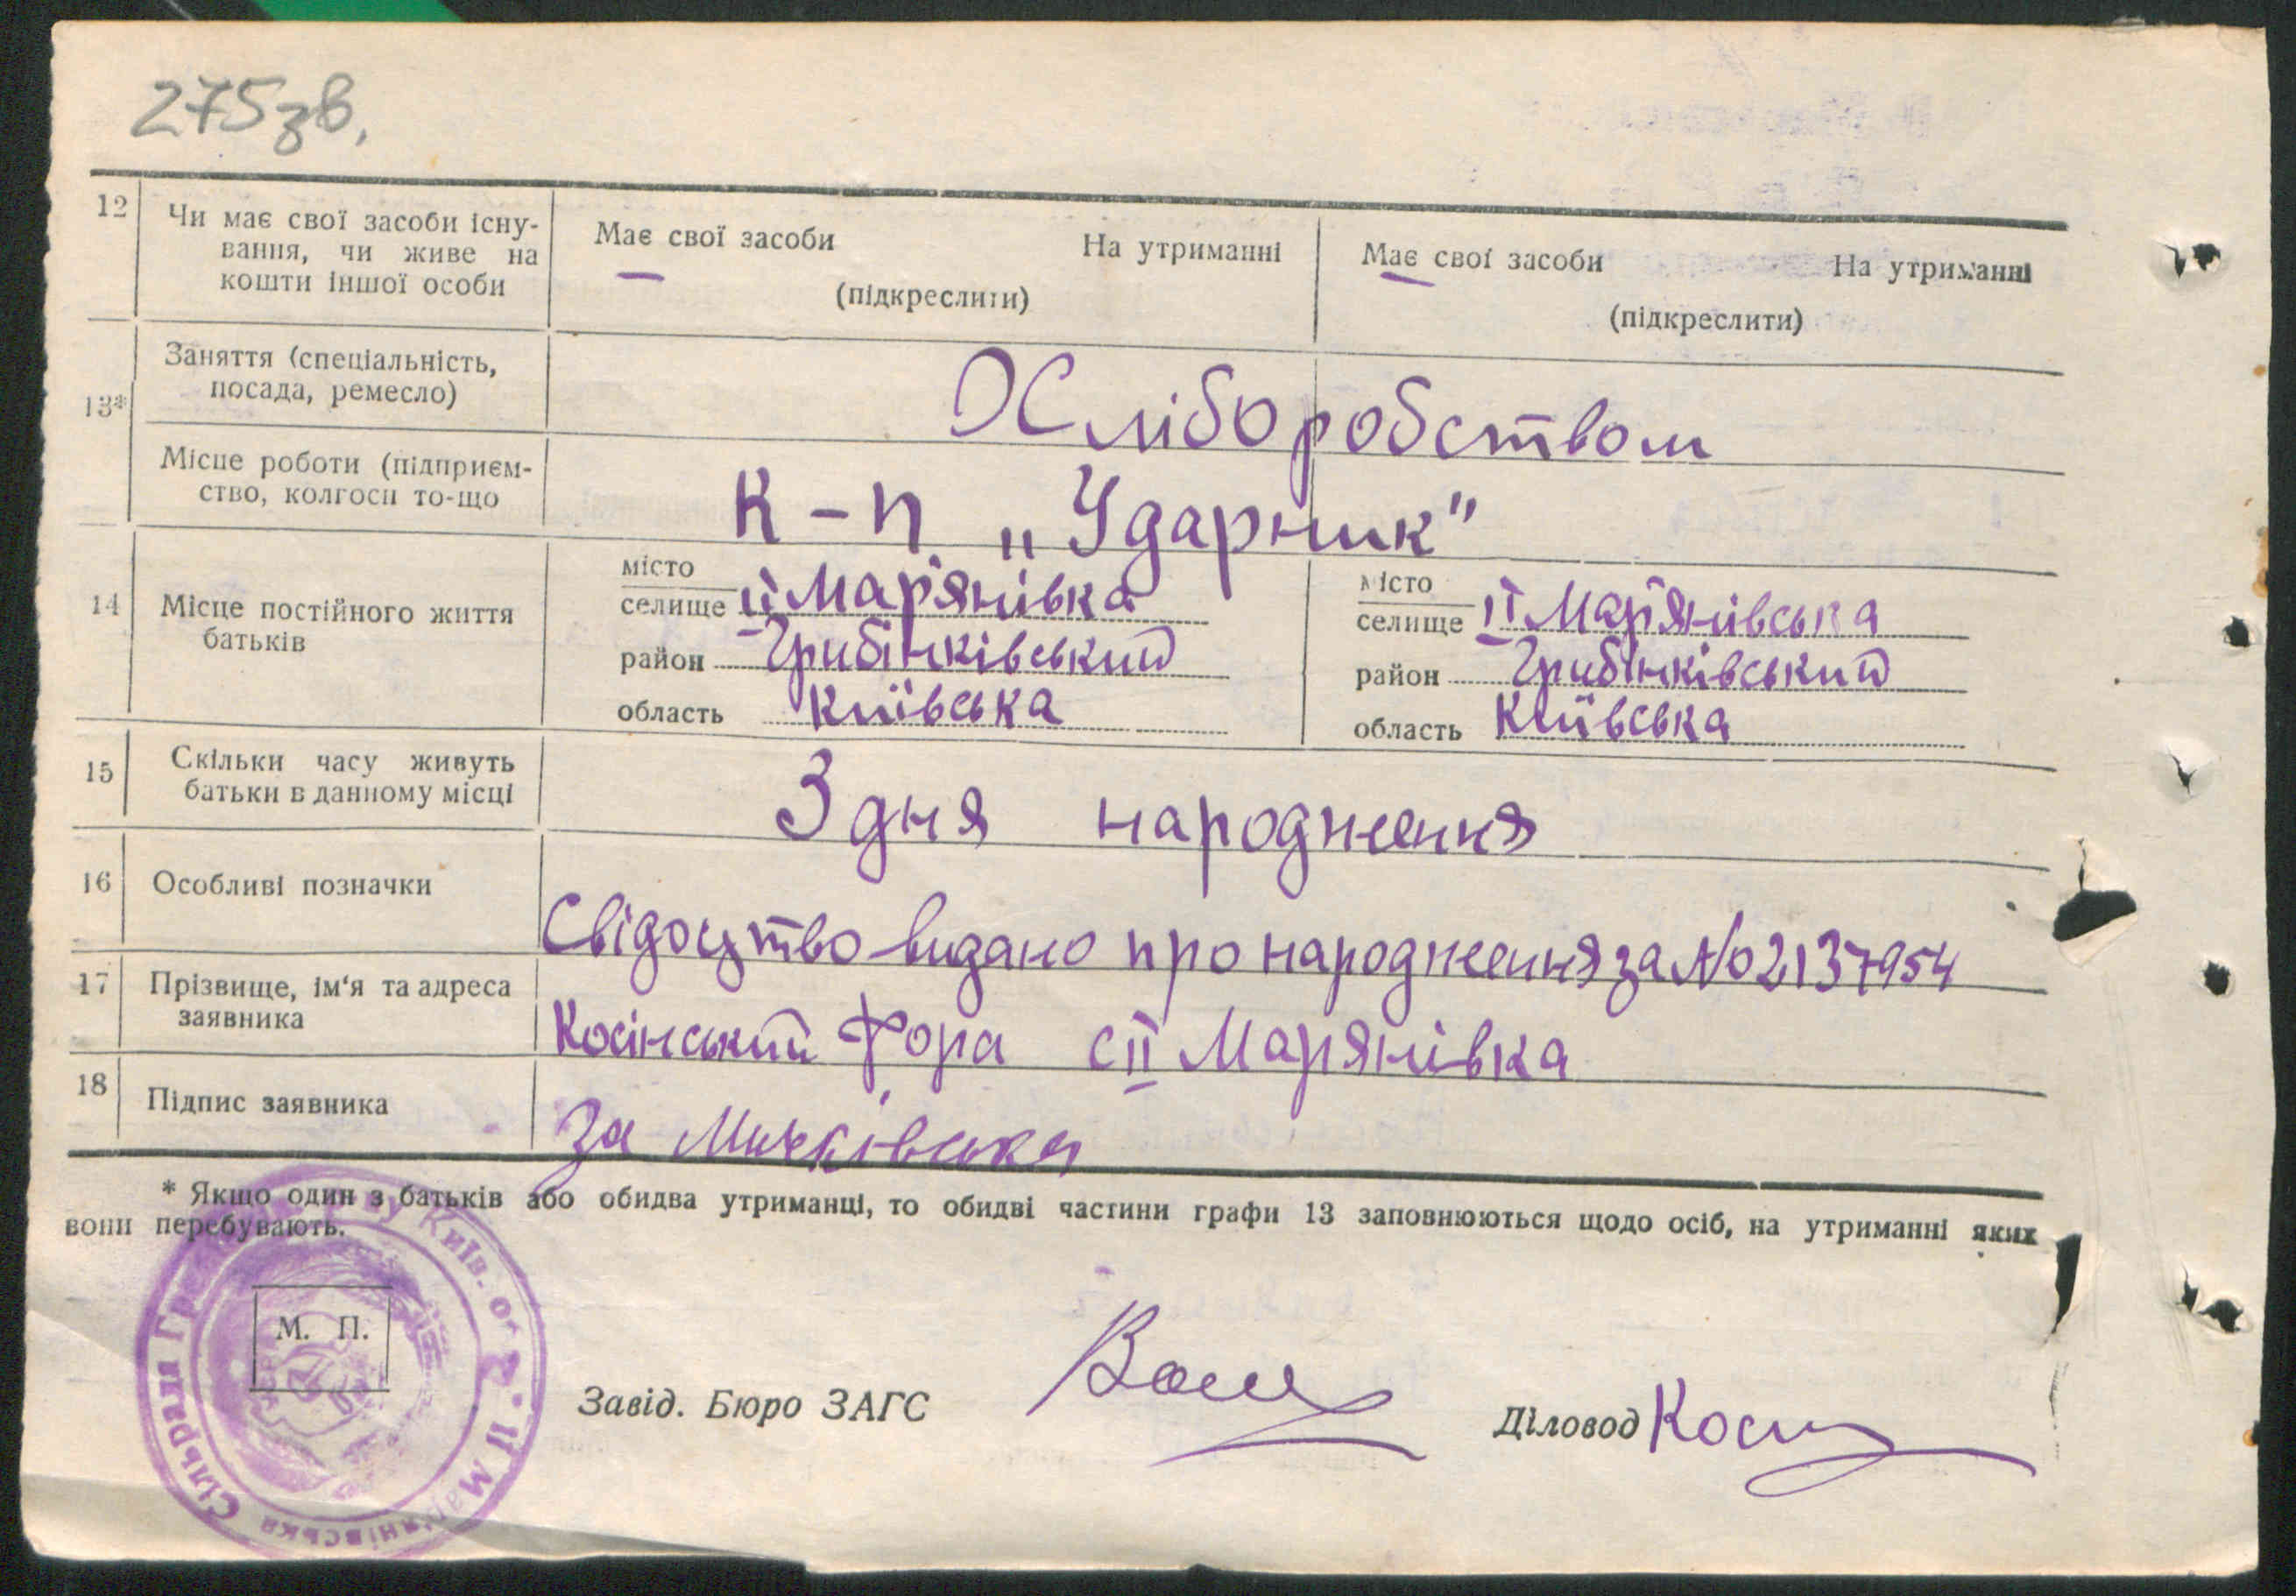 275зв.
12 Чи має свої засоби існу-
вання, чи живе на
кошти іншої особи
Має свої засоби На утриманні
(підкреслити)
Має свої засоби На утриманні
(підкреслити)
13* Заняття (спеціальність,
посада, ремесло)
Хліборобством
Місце роботи (підприєм-
ство, колгосп то-що
К-п „Ударник"
14 Місце постійного життя
батьків
місто
селище II Мар'янівка
район Грибінківський
область Київська
місто
селище II Мар'янівська
район Грибінківський
область Київська
15 Скільки часу живуть
батьки в данному місці
З дня народження
16 Особливі позначки
Свідоцтво видано про народження за № 2137954
17 Прізвище, ім'я та адреса
заявника
Косінський Фора с II Марянівка
18 Підпис заявника
За
* Якщо один з батьків або обидва утриманці, то обидві частини графи 13 заповнюються щодо осіб, на утриманні яких
вони перебувають.
М. П.
Сільрада Київ. II Мар'янівська
Завід. Бюро ЗАГС
Діловод